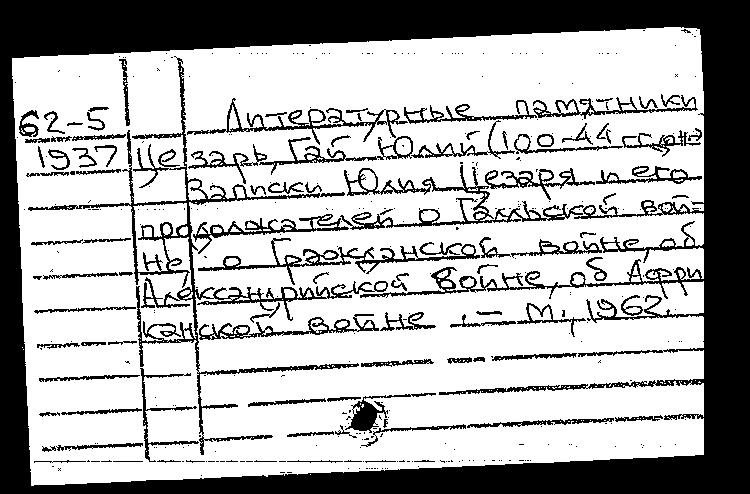 62-5 Литературные памятники
1937 Цезарь, Гай Юлий (100-44 гг.
Записки Юлия Цезаря и его
продолжателей о Галльской вой-
не, о Гражданской войне, об
Александрийской войне, об Афри
канской войне. - М., 1962.